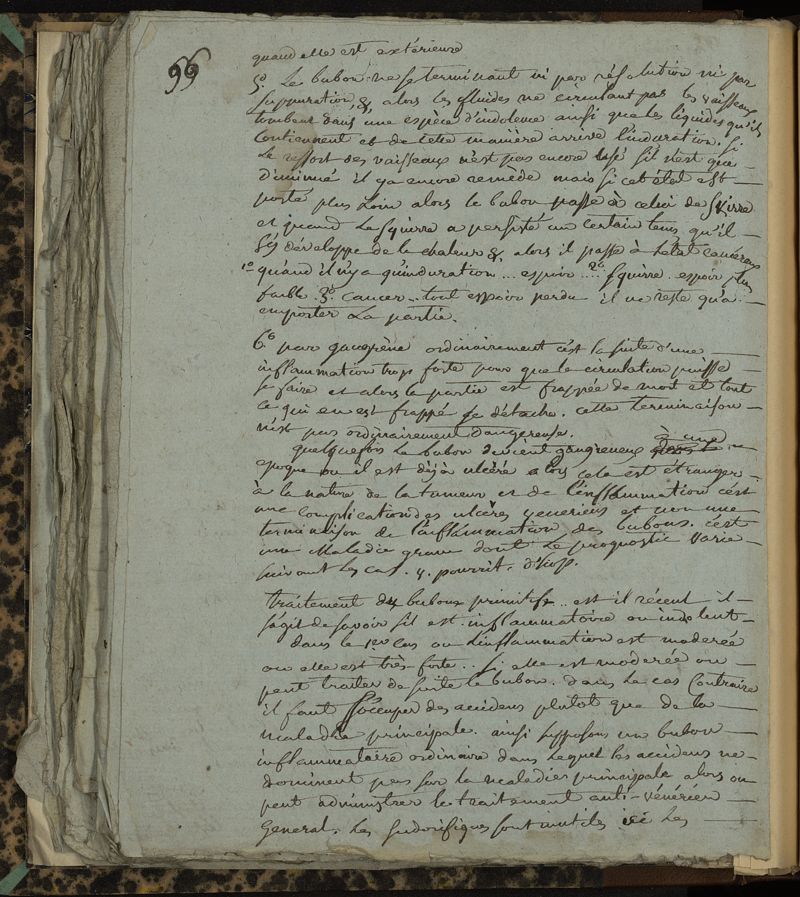 99
quand elle est extérieure
5° Le bubon ne se terminant ni par résolution ni par
suppuration, &, alors les fluides ne circulant pas les vaisseaux
tombent dans une espèce d'indolence ainsi que les liquides qu'ils
contiennent et de cette manière arrive l'induration. si
Le ressort des vaisseaux n'est pas encore usé s'il n'est que
diminué il y a encore remède mais si cet état est
porté plus loin alors le bubon passe à celui de skirre
et quand le squirre a persisté un certain tems qu'il
s'y développe de la chaleur &. alors il passe à l'état cancéreux
1° quand il n'y a qu'induration ... espoir ... 2° squirre. espoir plus
faible. 3° cancer .. tout espoir perdu il ne reste qu'à
emporter la partie.
6° par gangrène ordinairement c'est la suite d'une
inflammation trop forte pour que la circulation puisse
se faire et alors la partie est frappée de mort et tout
ce qui en est frappé se détache. cette terminaison
n'est pas ordinairement dangereuse.
quelquefois le bubon devient gangreneux à une
epoque ou il est déjà ulcéré alors cela est étranger
à la nature de la tumeur et de l'inflammation c'est
une complication des ulcères veneriens et non une
terminaison de l'inflammation des bubons. c'est
une maladie grave dont le prognostic varie
suivant les cas. v. pourrit. d'hosp.
traitement des bubons primitifs .. est il récent il
s'agit de savoir s'il est inflammatoire ou indolent
dans le 1er cas ou l'inflammation est moderée
ou elle est très-forte .. si elle est moderée on
peut traiter de suite le bubon. dans le cas contraire
il faut s'occuper des accidens plutot que de la
maladie principale. ainsi supposons un bubon
inflammatoire ordinaire dans lequel les accidens ne
dominent pas sur la maladie principale alors on
peut administrer le traitement anti-vénérien
General. les sudorifiques sont inutiles ici les